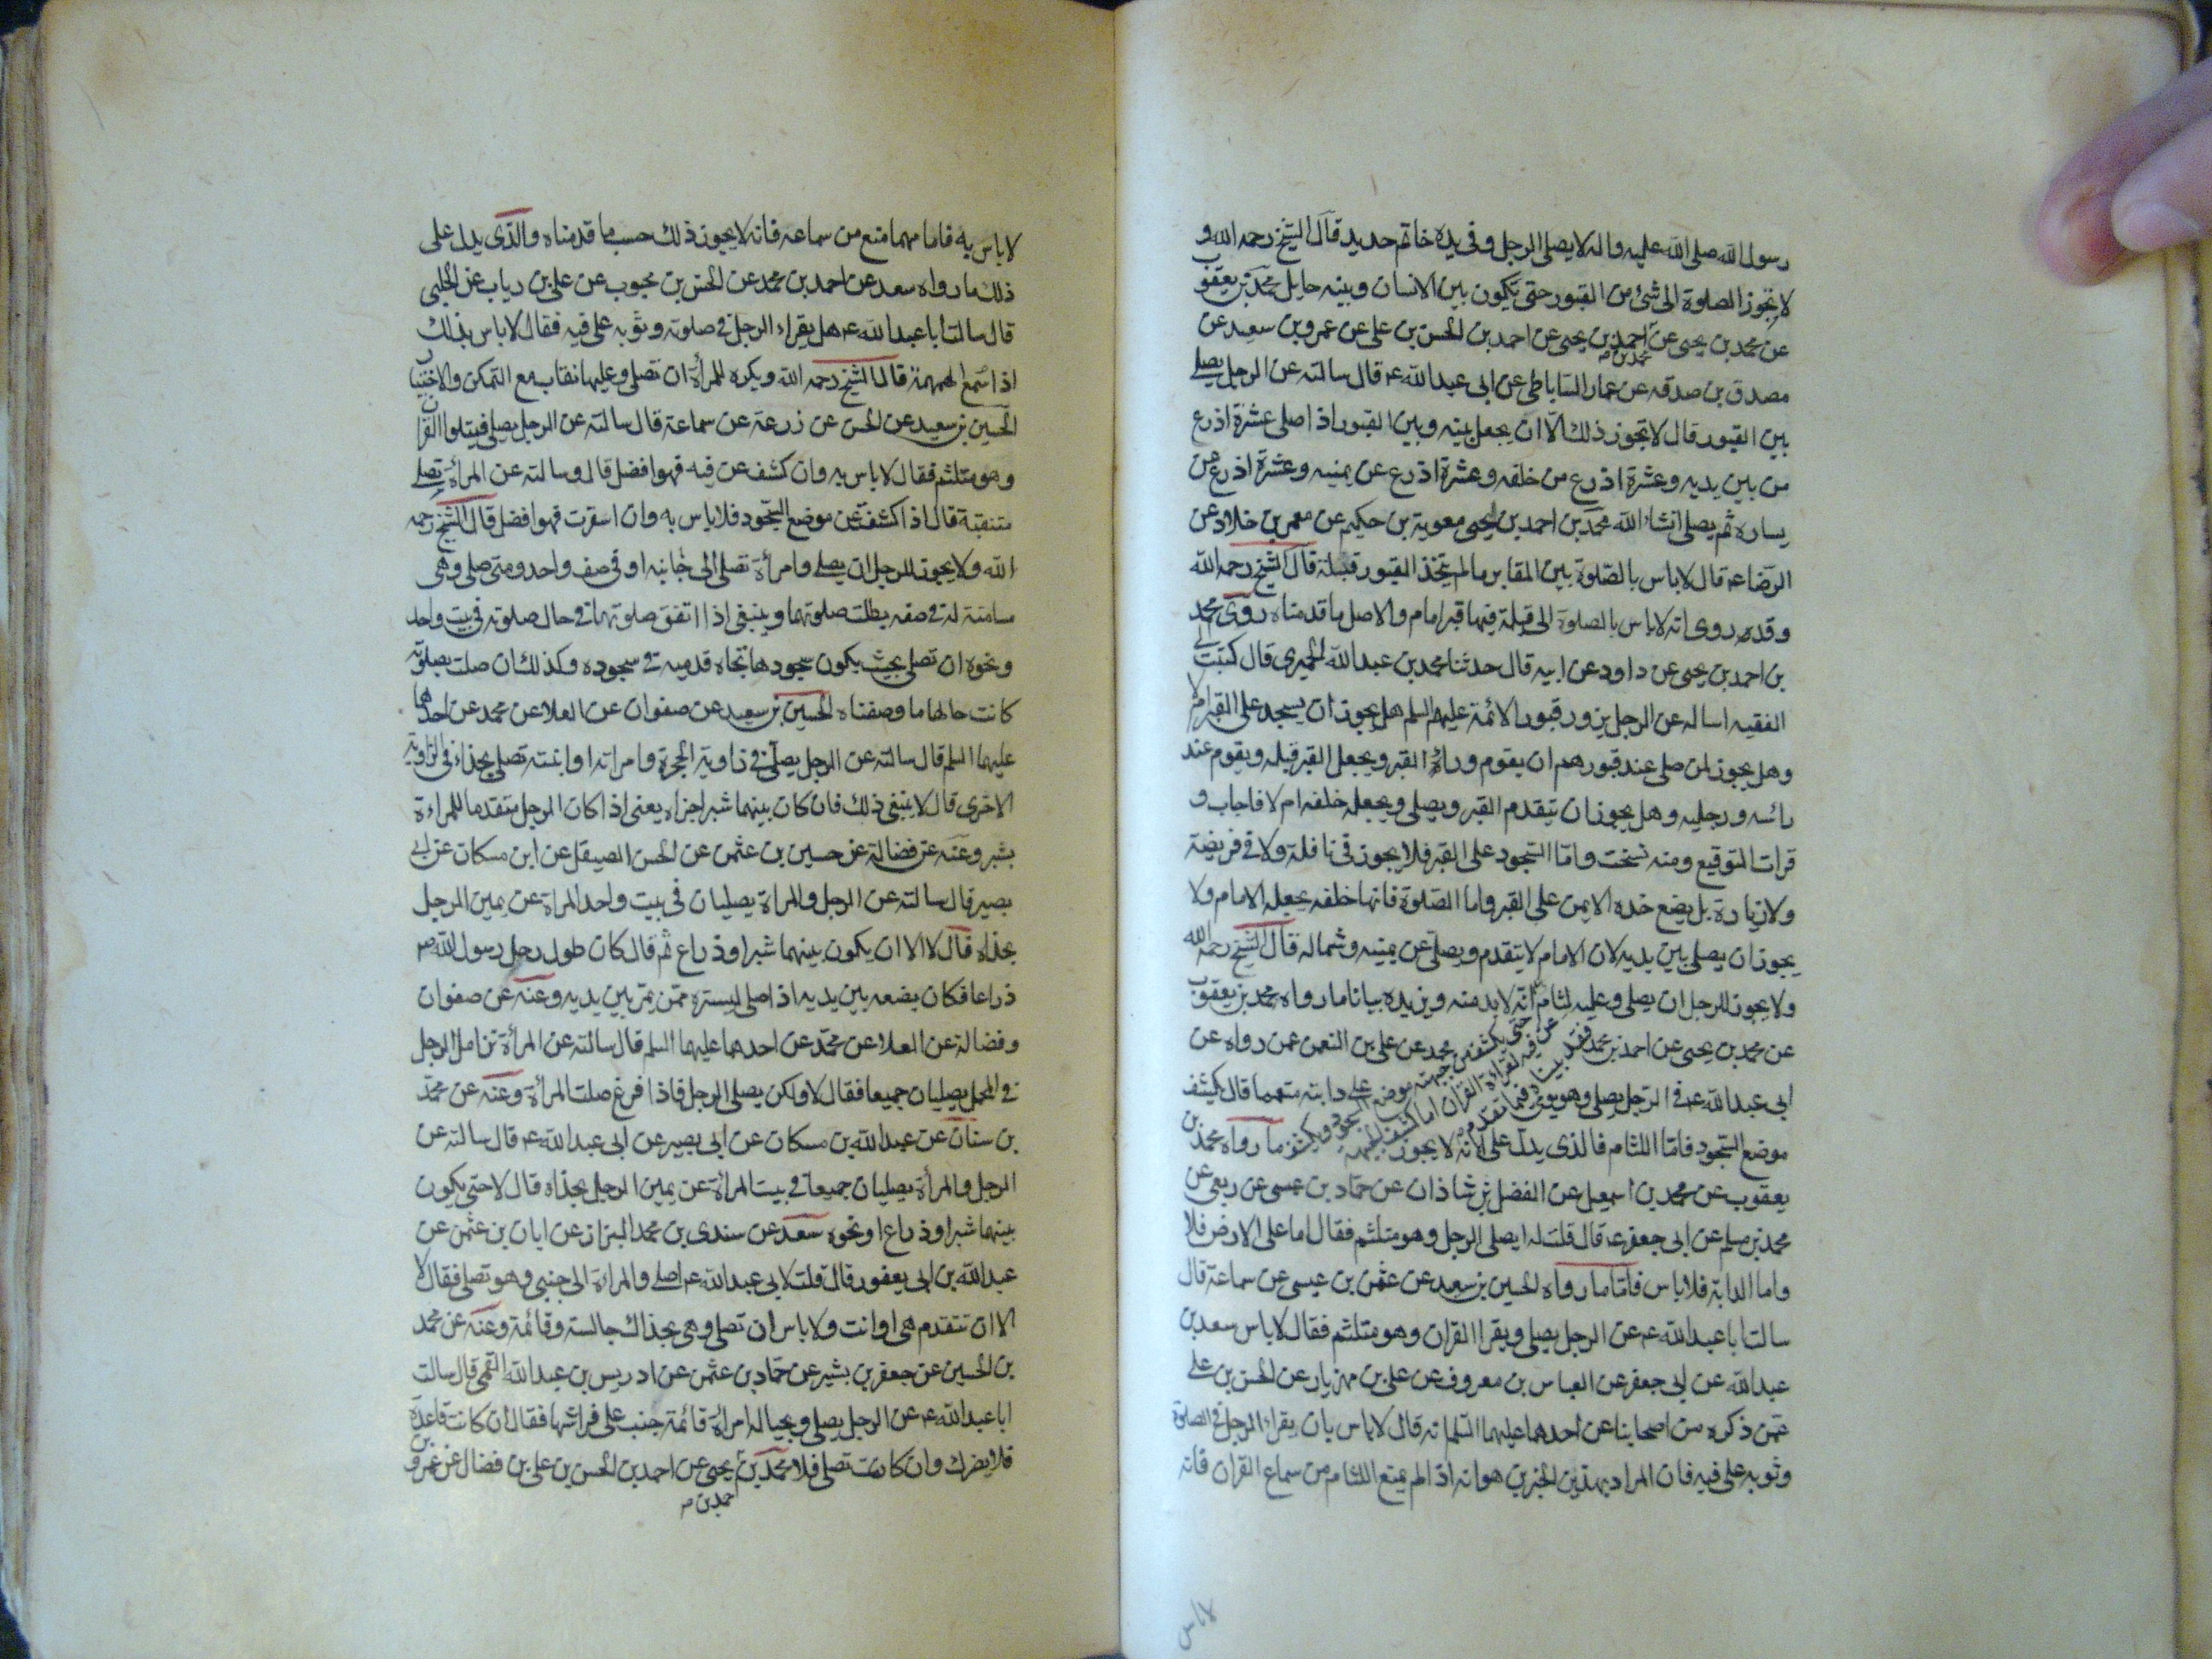 رسول الله صلى الله عليه واله لا يصلى الرجل وفى يده خاتم حديد قال الشيخ رحمه الله و
لا تجوز الصلوة الى شئ من القبور حتى يكون بين الانسان وبينه حايل محمد بن يعقوب
عن محمد بن يحيى عن احمد بن يحيى عن احمد بن الحسن بن على عن عمرو بن سعيد عن
محمد بن
مصدق بن صدقه عن عمار الساباطى عن ابى عبد الله ع قال سالته عن الرجل يصلى
بين القبور قال لا تجوز ذلك الا ان يجعل بينه وبين القبور اذا صلى عشرة اذرع
من بين يديه وعشرة اذرع من خلفه وعشرة اذرع عن يمينه وعشرة اذرع عن
يساره ثم يصلى انشاء الله محمد بن احمد بن يحيى معوية بن حكيم عن معمر بن خلاد عن
الرضا ع قال لا باس بالصلوة بين المقابر مالم يتخذ القبور قبلة قال الشيخ رحمه الله
وقد روى انه لا باس بالصلوة الى قبلة فيها قبر امام والاصل ما قدمناه روى محمد
بن احمد بن يحيى عن داود عن ابيه قال حدثنا محمد بن عبد الله الحميرى قال كتبت الى
الفقيه اساله عن الرجل يزور قبور الائمة عليهم السلم هل يجوز ان يسجد على القبر ام لا
وهل يجوز لمن صلى عند قبورهم ان يقوم وراء القبر ويجعل القبر قبله ويقوم عند
رائسه ورجليه وهل يجوز ان يتقدم القبر ويصلى ويجعله خلفه ام لا فاجاب و
قرات التوقيع ومنه نسخت واما السجود على القبر فلا يجوز فى نافلة ولا فى فريضة
ولا زيارة بل يضع خده الايمن على القبر واما الصلوة فانها خلفه يجعله الامام ولا
يجوز ان يصلى بين يديه لان الامام لا يتقدم ويصلى عن يمينه وشماله قال الشيخ رحمه الله
ولا يجوز للرجل ان يصلى وعليه لثام انه لا بد منه ويزيده بيانا ما رواه محمد بن يعقوب
عن محمد بن يحيى عن احمد بن محمد بن محمد عن على بن النعمن عمن رواه عن
ابى عبد الله ع فى الرجل يصلى وهو يومى على دابته متعمما قال يكشف
موضع السجود فاما اللثام فالذى يدل على انه لا يجوز ما رواه محمد بن
يعقوب عن محمد بن اسمعيل عن الفضل بن شاذان عن حماد بن عيسى عن ربعى عن
محمد بن مسلم عن ابى جعفر ع قال قلت له ايصلى الرجل وهو متلثم فقال اما على الارض فلا
واما الدابة فلا باس فاما ما رواه الحسين بن سعيد عن عثمن بن عيسى عن سماعة قال
سالت ابا عبد الله ع عن الرجل يصلى ويقرا القران وهو متلثم فقال لا باس سعد بن
عبد الله عن ابى جعفر عن العباس بن معروف عن على بن مهزيار عن الحسن بن على
عمن ذكره من اصحابنا عن احدهما عليهما السلم انه قال لا باس بان يقراء الرجل فى الصلوة
وثوبه على فيه فان المراد بهذين الخبرين هو انه اذا لم يمنع اللثام من سماع القران فانه
لا باس
لا باس به فاما مهما منع من سماعه فانه لا يجوز ذلك حسب ما قدمناه والذى يدل على
ذلك ما رواه سعد عن احمد بن محمد عن الحسن بن محبوب عن على بن رياب عن الحلبى
قال سالت ابا عبد الله ع هل يقراء الرجل فى صلوته وثوبه على فيه فقال لا باس بذلك
اذا اسمع الهمهمة قال الشيخ رحمه الله ويكره للمرأة ان تصلى وعليها نقاب مع التمكن والاختيار
الحسين بن سعيد عن الحسن عن زرعة عن سماعة قال سالته عن الرجل يصلى فيتلوا القران
وهو متلثم فقال لا باس به وان كشف عن فيه فهو افضل قال وسالته عن المرأة تصلى
متنقبة قال اذا كشفت عن موضع السجود فلا باس به وان اسفرت فهو افضل قال الشيخ رحمه
الله ولا يجوز للرجل ان يصلى وامرأة تصلى الى جانبه او فى صف واحد ومتى صلى وهى
سامتة له فى صفه بطلت صلوتهما وينبغى اذا اتفق صلوتهما فى حال صلوته فى بيت واحد
ونحوه ان تصلى بحيث يكون سجودها تجاه قدميه فى سجوده وكذلك ان صلت بصلوته
كانت حالها ما وصفناه الحسين بن سعيد عن صفوان عن العلا عن محمد عن احدهما
عليهما السلم قال سالته عن الرجل يصلى فى زاوية الحجرة وامراته او ابنته تصلى بحذاه فى الزاوية
الاخرى قال لا ينبغى ذلك فان كان بينهما شبر اجزاه يعنى اذا كان الرجل متقدما للمراءة
بشبر وعنه عن فضالة عن حسين بن عثمن عن الحسن الصيقل عن ابن مسكان عن ابى
بصير قال سالته عن الرجل والمراة يصليان فى بيت واحد المراة عن يمين الرجل
بحذاه قال لا الا ان يكون بينهما شبر او ذراع ثم قال كان طول رحل رسول الله ص
ذراعا فكان يضعه بين يديه اذا صلى ليستره ممن يمر بين يديه وعنه عن صفوان
وفضالة عن العلا عن محمد عن احدهما عليهما السلم قال سالته عن المرأة تزامل الرجل
فى المحمل يصليان جميعا فقال لا ولكن يصلى الرجل فاذا فرغ صلت المرأة وعنه عن محمد
بن سنان عن عبد الله بن مسكان عن ابى بصير عن ابى عبد الله ع قال سالته عن
الرجل والمرأة يصليان جميعا فى بيت المرأة عن يمين الرجل بحذاه قال لا حتى يكون
بينهما شبر او ذراع او نحوه سعد عن سندى بن محمد البزاز عن ابان بن عثمن عن
عبد الله بن ابى يعفور قال قلت لابى عبد الله ع اصلى والمراة الى جنبى وهو تصلى فقال لا
الا ان تتقدم هى او انت ولا باس ان تصلى وهى بحذاك جالسة وقائمة وعنه عن محمد
بن الحسين عن جعفر بن بشير عن حماد بن عثمن عن ادريس بن عبد الله القمى قال سالت
ابا عبد الله ع عن الرجل يصلى وبحياله امرأة قائمة جنب على فراشها فقال ان كانت قاعدة
فلا يضرك وان كانت تصلى فلا محمد بن يحيى عن احمد بن الحسن بن على بن فضال عن عمرو بن
احمد بن